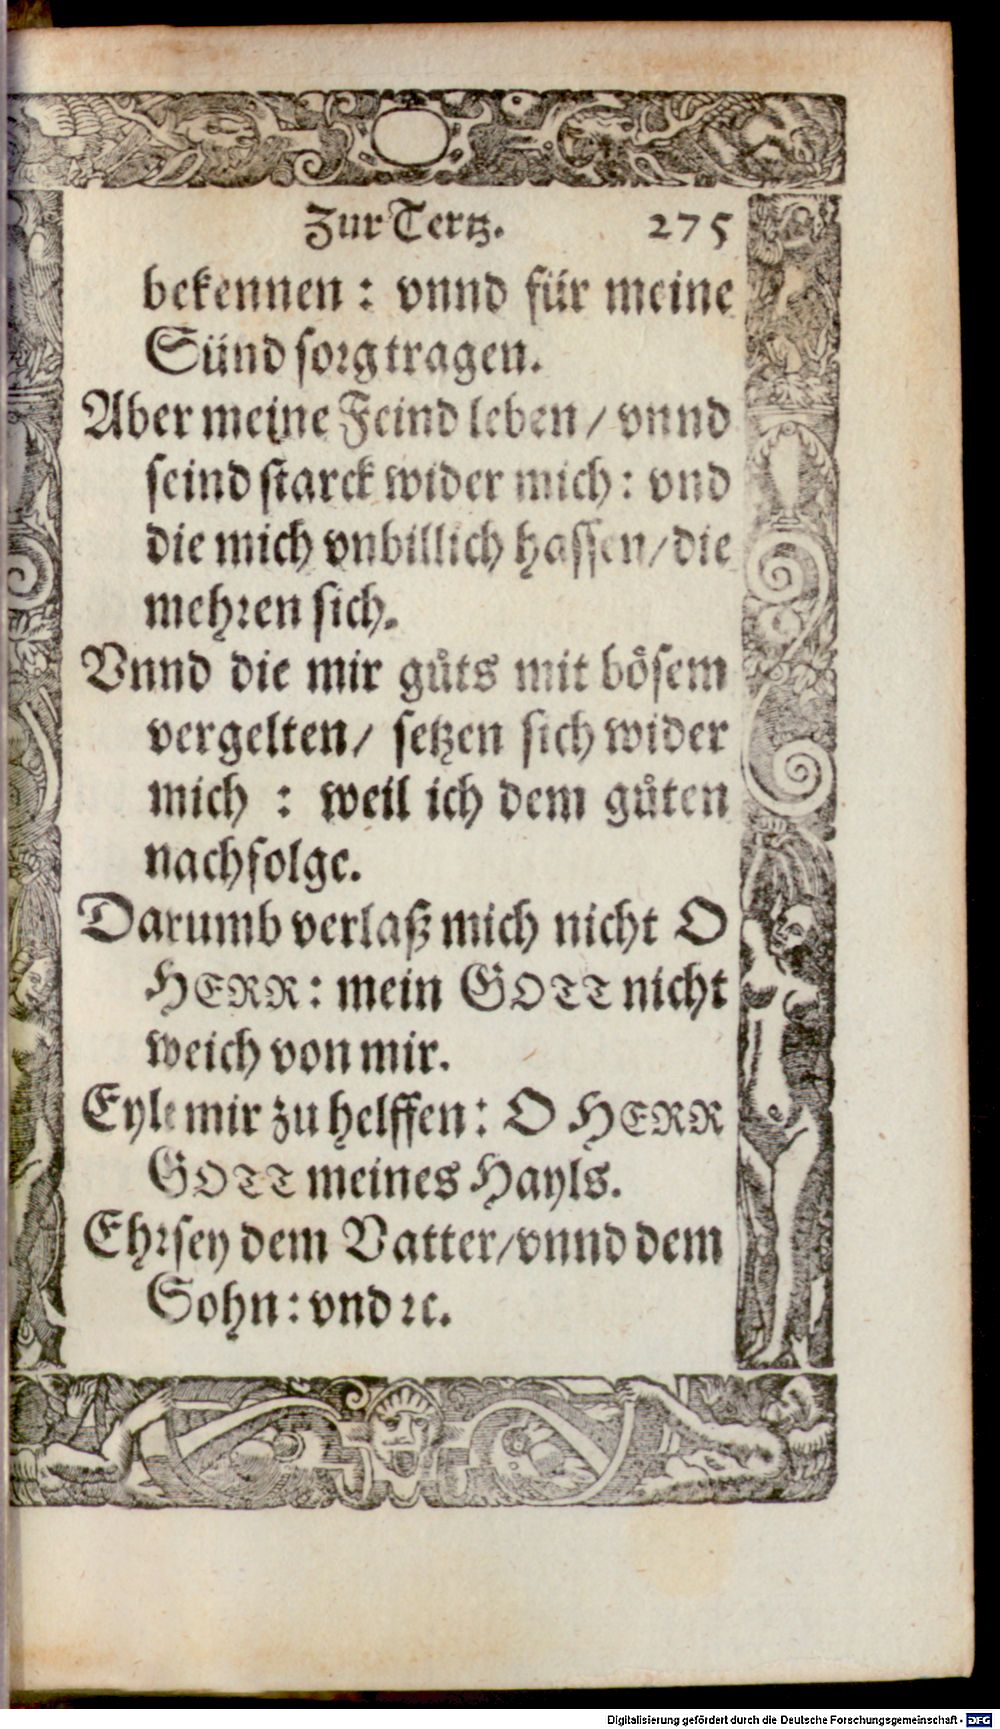 Zur Tertz. 275
bekennen : vnnd für meine
Sünd sorg tragen.
Aber meine Feind leben / vnnd
seind starck wider mich : vnd
die mich vnbillich hassen / die
mehren sich.
Vnnd die mir gůts mit bösem
vergelten / setzen sich wider
mich : weil ich dem gůten
nachfolge.
Darumb verlaß mich nicht O
HERR : mein GOTT nicht
weich von mir.
Eyle mir zu helffen : O HERR
GOTT meines Hayls.
Ehr sey dem Vatter / vnnd dem
Sohn : vnd ꝛc.
Digitalisierung gefördert durch die Deutsche Forschungsgemeinschaft - DFG